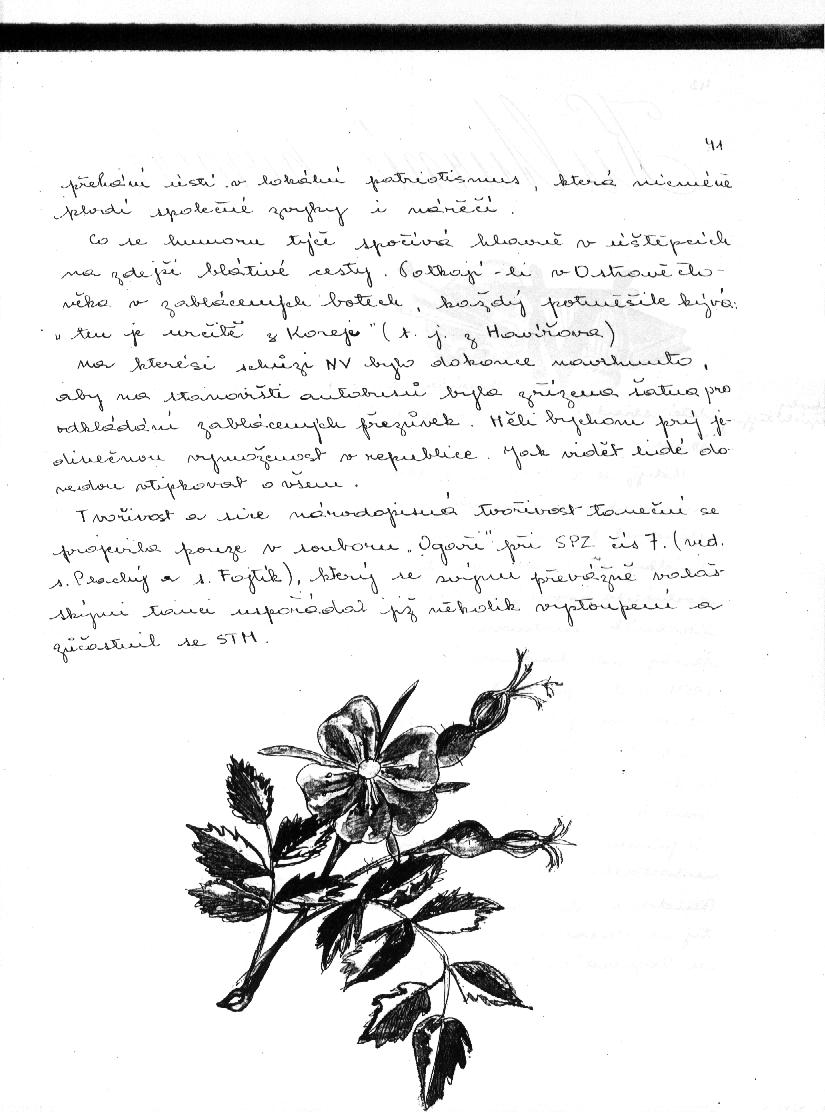 41
přehání ústí v lokální patriotismus, která nicméně
plodí společné zvyky i nářečí.
Co se humoru týče spočívá hlavně v úštěpcích
na zdejší blátivé cesty. Potkají-li v Ostravě člo-
věka v zablácených botech, každý potměšile kývá:
„ten je určitě z Koreje" (t. j. z Havířova)
Na kterési schůzi NV bylo dokonce navrhnuto,
aby na stanovišti autobusů byla zřízena šatna pro
odkládání zablácených přezůvek. Měli bychom prý je-
dinečnou vymoženost v republice. Jak vidět lidé do-
vedou vtipkovat o všem.
Tvořivost a sice národopisná tvořivost taneční se
projevila pouze v souboru „Ogaři" při SPZ čís 7. (ved.
s. Plachý a s. Fojtík), který se svými převážně valaš-
skými tanci uspořádal již několik vystoupení a
zúčastnil se STM.